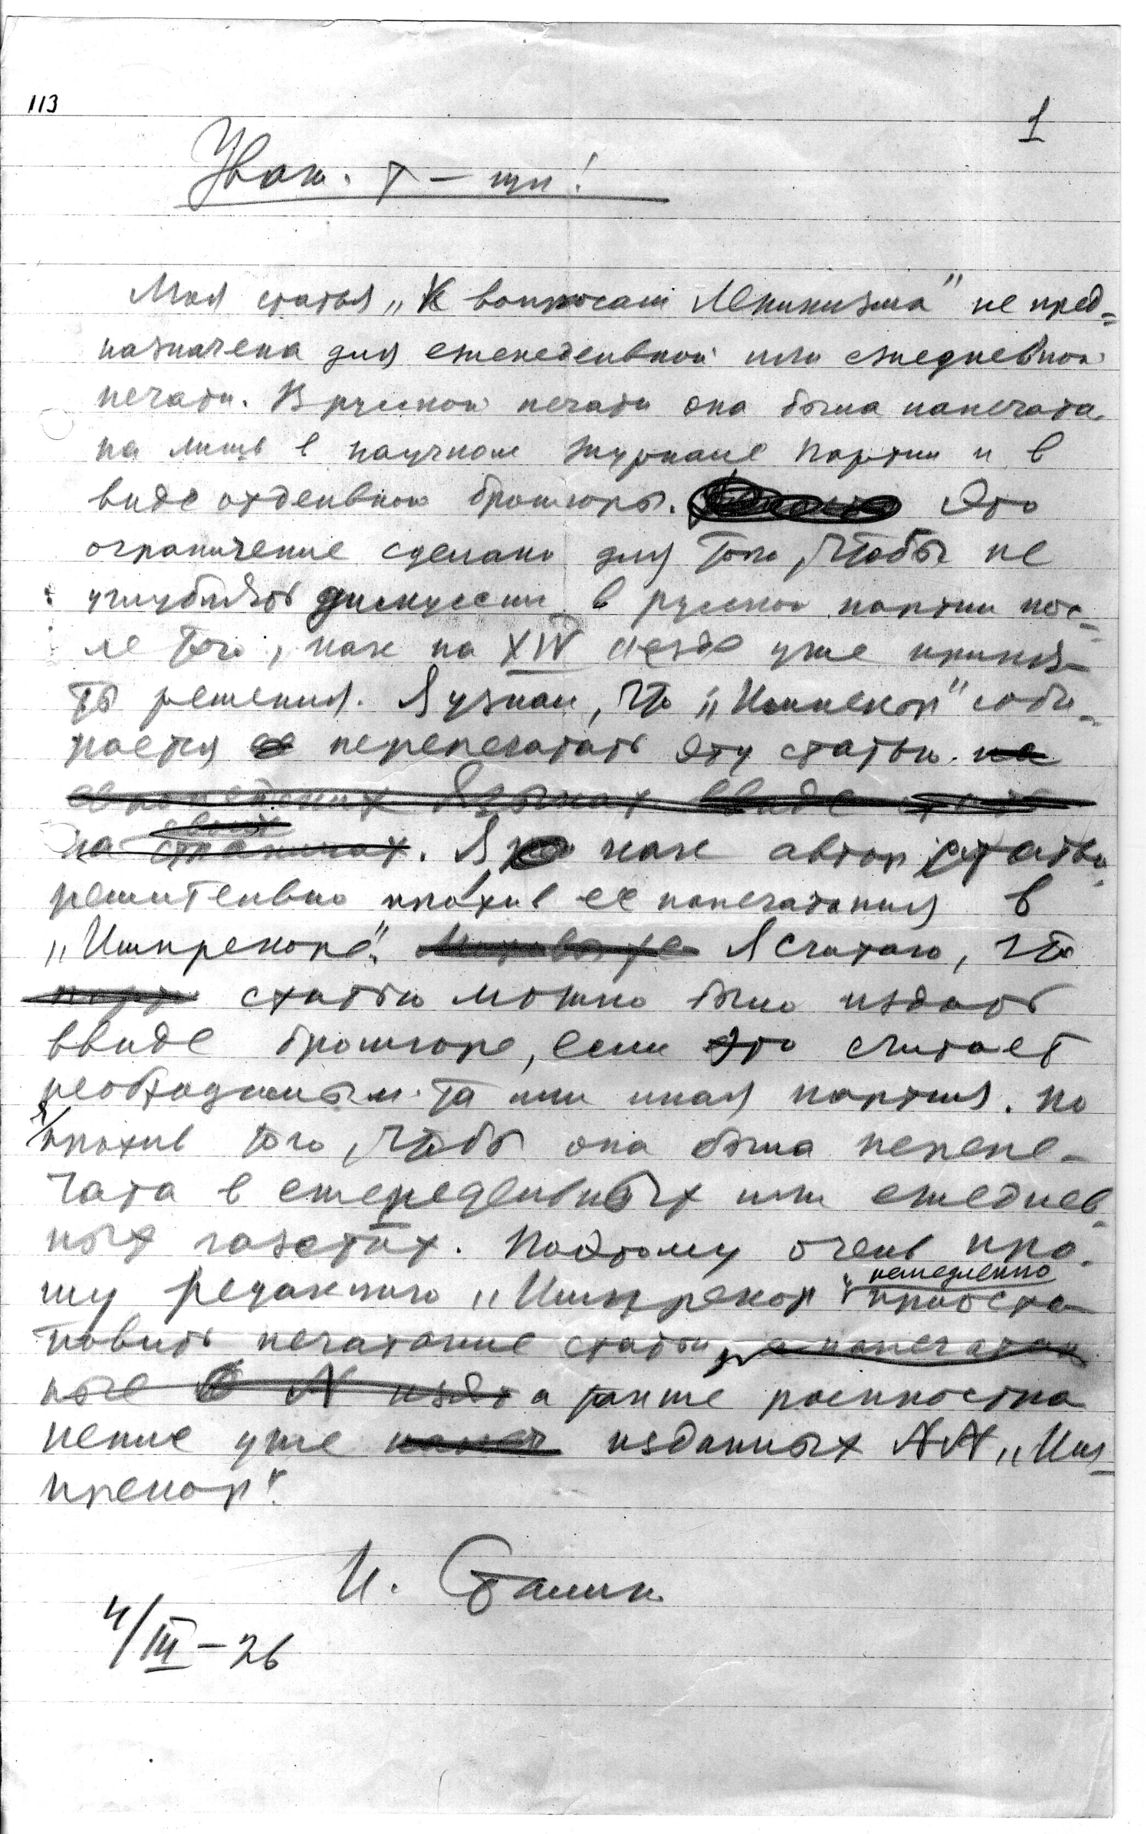 113
1
Уваж. т-щи!
Моя статья „К вопросам Ленинизма" не пред=
назначена для еженедельной или ежедневной
печати. В русской печати она была напечата
на лишь в научном журнале партии и в
виде отдельной брошюры. Это
ограничение сделано для того, чтобы не
углублять дискуссии в русской партии пос=
ле того, как на XIV съезде уже приня-
ты решения. Я узнал, что „Инпрекор" соби-
рается ее перепечатать эту статью на
европейских языках ввиде
на своих страницах. Я как автор статьи
решительно против ее напечатания в
„Инпрекоре". Я считаю, что
статью можно было издать
ввиде брошюры, если это считает
необходимым та или иная партия. Но
я против того, чтобы она была перепе-
чата в еженедельных или ежеднев-
ных газетах. Поэтому очень про-
шу редакцию „Инпрекор" немедленно приоста-
новить печатание статьи, а напечатан
ные № а также распростра
нение уже напеч изданных №№ „Ин-
прекор".
И. Сталин
4/III – 26